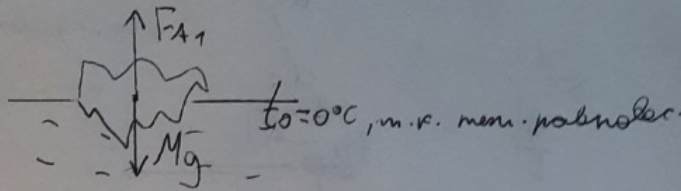 F_A1
t₀=0°C, т.к. теп. равновес.
Mg